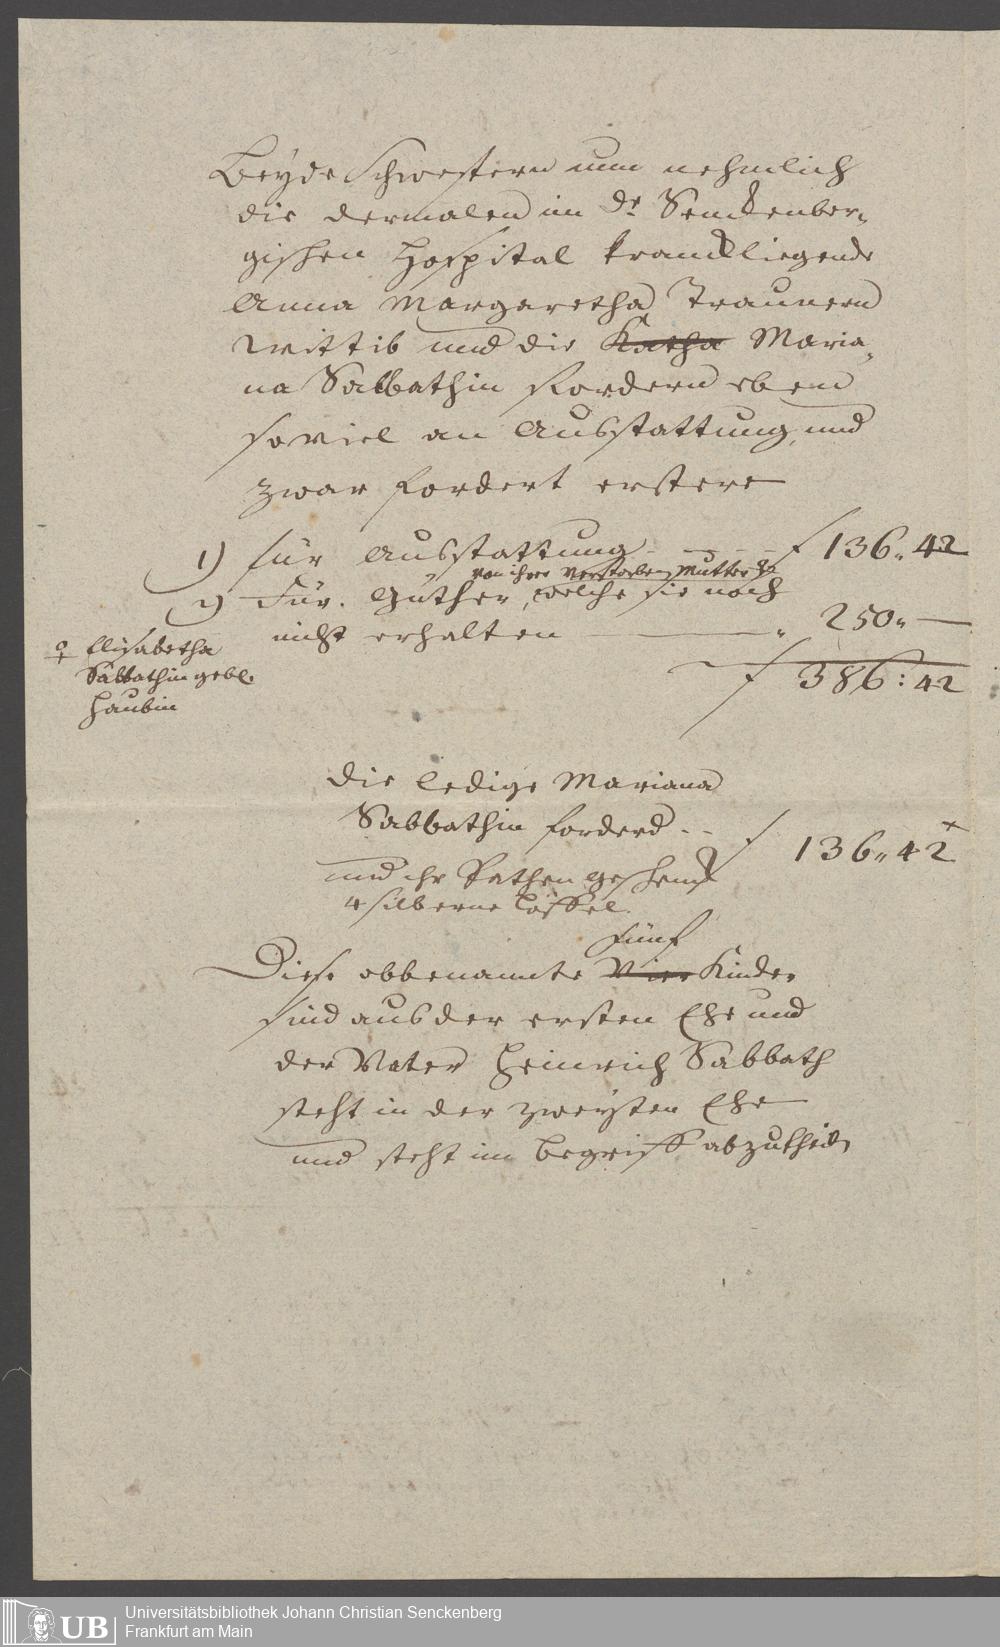 Beyde Schwestern nun nehmlich
die dermalen im Dr Senckenber„
gischen Hospital krancklliegende
Anna Margaretha Traunern
Wittib und die Katha Maria„
na Sabbathin fordern eben
soviel an Ausstattung, und
zwar fordert erstere
1) für Ausstattung - - - - f 136„ 42
von ihrer verstorbenen Mutter ♀
2) Für. Güther, welche sie noch
nicht erhalten — „ 250„ —
f 386: 42
♀ Elisabetha
Sabbathin gebl.
Haubin
die ledige Mariana
Sabbathin forderd - - f 136„ 42
und ihr Pathen geschenck
4 silberne Löffel.
fünf
Diese obbenannte Vier Kinder
sind aus der ersten Ehe und
der Vater Heinrich Sabbath
steht in der zweyten Ehe
und steht im begriff abzutheilen
UB
Universitätsbibliothek Johann Christian Senckenberg
Frankfurt am Main